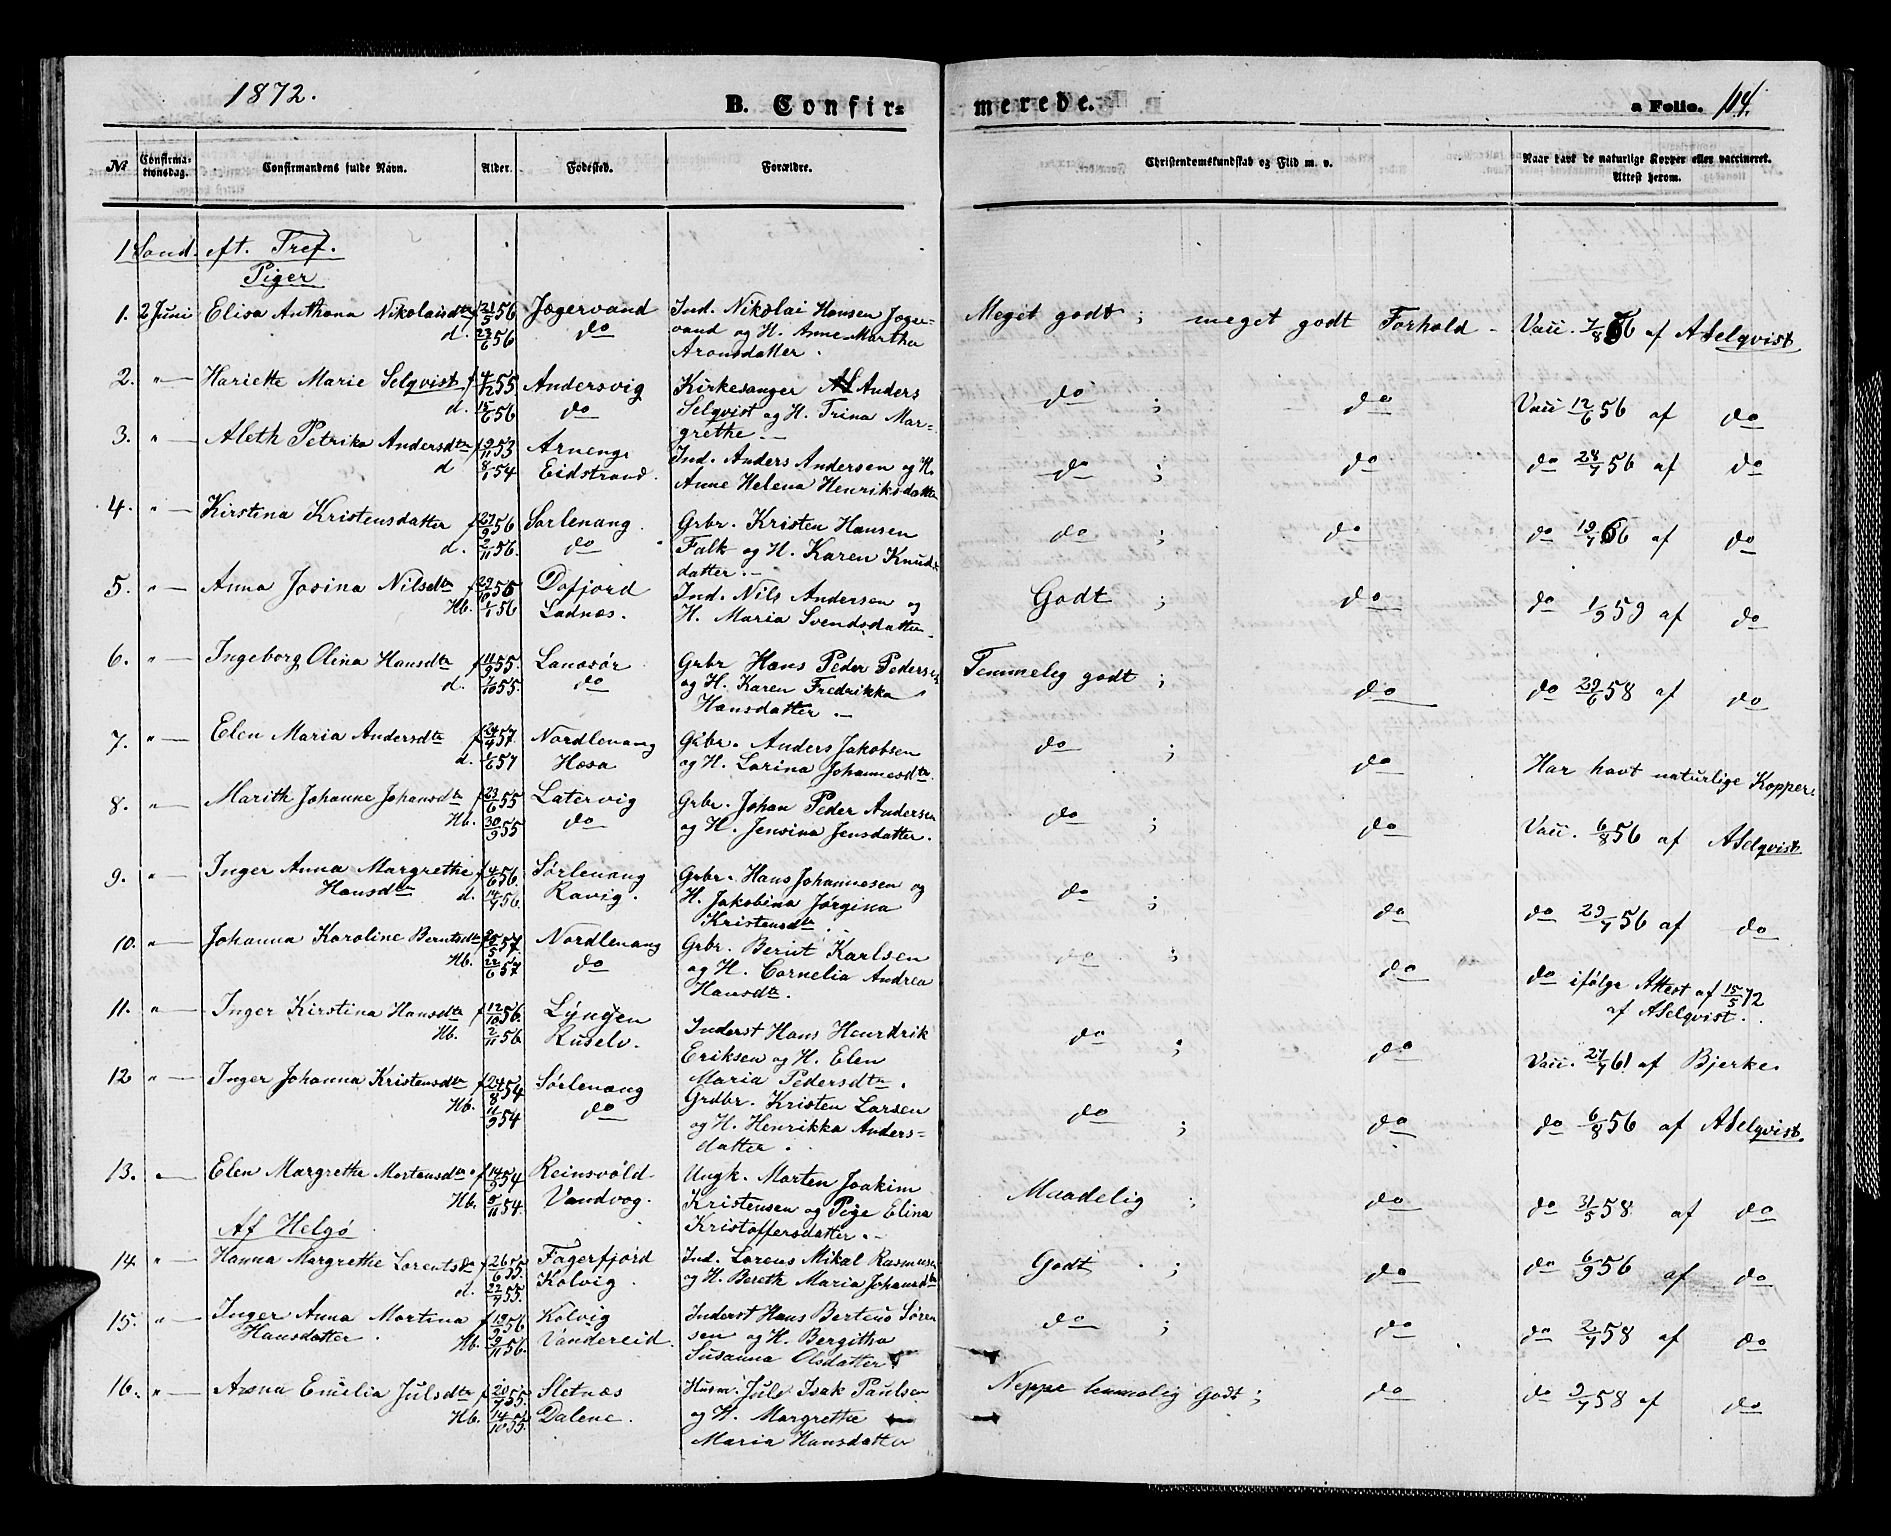 1872.
B. Confir=
merede.
a Folio. 114.
No
Confirma-
tionsdag.
Confirmandens fulde Navn.
Alder.
Fødested.
Forældre.
Christendomskundskab og Flid m. v.
Naar havt de naturlige Kopper eller vaccineret.
Attest herom.
1 Sønd. eft. Tref.
Piger
1. 2 Juni Elisa Anthona Nikolaisdtr f 21/5 56 Jægervand Ind. Nikolai Hansen Jæger- Meget godt ; meget godt Forhold - Vacc. 7/8 56 af ASelqvist
d. 23/6 56 do vand og H. Anne Martha
Aronsdatter.
2. " — Hariette Marie Selqvist f 4/12 55 Andersvig Kirkesanger Anders do ; do Vacc 12/6 56 af do
d. 15/6 56 do Selqvist og H. Trina Mar-
grethe. -
3. " — Aleth Petrika Andersdtr f 9/11 53 Arneng. Ind. Anders Andersen og H. do ; do do 28/7 56 af do
d 8/1 54 Eidstrand. Anne Helena Henriksdatter
4. " — Kirstina Kristensdatter f 27/9 56 Sørlenang. Grbr. Kristen Hansen do ; do do 19/7 66 af do
d. 2/11 56. do Falk og H. Karen Knuds
datter. -
5. " — Anna Josina Nilsdtr f 29/10 55 Dofjord Ind. Nils Andersen og Godt ; do do 1/9 59 af do
Hb. 1/1 56 Ladnæs. H. Maria Svendsdatter
6. " — Ingeborg Olina Hansdtr f 11/9 55. Lanæsør Grbr Hans Peder Peders Temmelig godt ; do do 29/6 58 af do
d. 7/10 55. do og H. Karen Fredrikka
Hansdatter. -
7. " — Elen Maria Andersdtr f 24/4 57. Nordlenang Grbr. Anders Jakobsen do ; do Har havt naturlige Kopper.
d. 1/6 57 Hæsa og H. Larina Johannesdtr.
8. " — Marith Johanne Johansdtr f 23/6 55 Latervig Grbr. Johan Peder Andersen do ; do Vacc. 6/8 56 af ASelqvist
Hb. 30/9 55 do og H. Jensina Jensdatter.
9. " — Inger Anna Margrethe f 4/6 56. Sørlenang Grbr. Hans Johannesen og do ; do do 29/7 56 af do
Hansdtr d. 14/7 56. Ravig. H. Jakobina Jørgina
Kristensdtr.
10. " — Johanna Karoline Berntsdtr f 25/5 57. Nordlenang Grbr. Bernt Karlsen do ; do do ifølge Attest af 15/5 72
Hb. 22/6 57 do og H. Cornelia Andrea af ASelqvist.
Hansdtr.
11. " — Inger Kirstina Hansdtr f 12/10 56. Lyngen Inderst Hans Henrdrik do ; do Vacc. 27/7 61 af Bjerke.
Hb. 2/11 56 Ruselv. Eriksen og H. Elen
Maria Pedersdtr.
12 " — Inger Johanna Kristensdtr f 24/8 54 Sørlenang Grdbr. Kristen Larsen do ; do do 6/8 56 af ASelqvist.
Hb. 11/9 54 do og H. Henrikka Anders=
datter.
13. " — Elen Margrethe Mortensdtr f 14/9 54 Reinsvold Ungk. Morten Joakim Maadelig ; do do 31/5 58 af do
Hb. 5/11 54. Vandvag. Kristensen og Pige Elina
Kristoffersdatter. -
Af Helgø
14. " — Hanna Margrethe Lorentsdtr f 26/6 55. Fagerfjord Ind. Lorens Mikal Rasmusen Godt ; do do 6/9 56 af do
d. 22/7 55. Kolvig. og H. Bereth Maria Johansdtr
15. " — Inger Anna Martina f 19/9 56 Kolvig Inderst Hans Berteus Søren do ; do do 2/7 58 af do
Hansdatter. Hb. 9/11 56. Vandereid. sen og H. Bergitha
Susanna Olsdatter.
16. " — Anna Emilia Julsdtr f 20/7 55. Sletnæs Husm. Jule Isak Paulsen Neppe temmelig godt ; do do 9/7 58 af do
Hb. 14/10 55. Dalene. og H. Margrethe
Maria Hansdatter